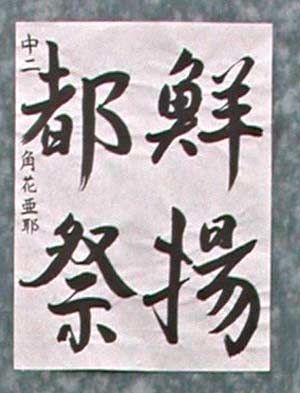 鮮揚
都祭
中二 角花亜耶